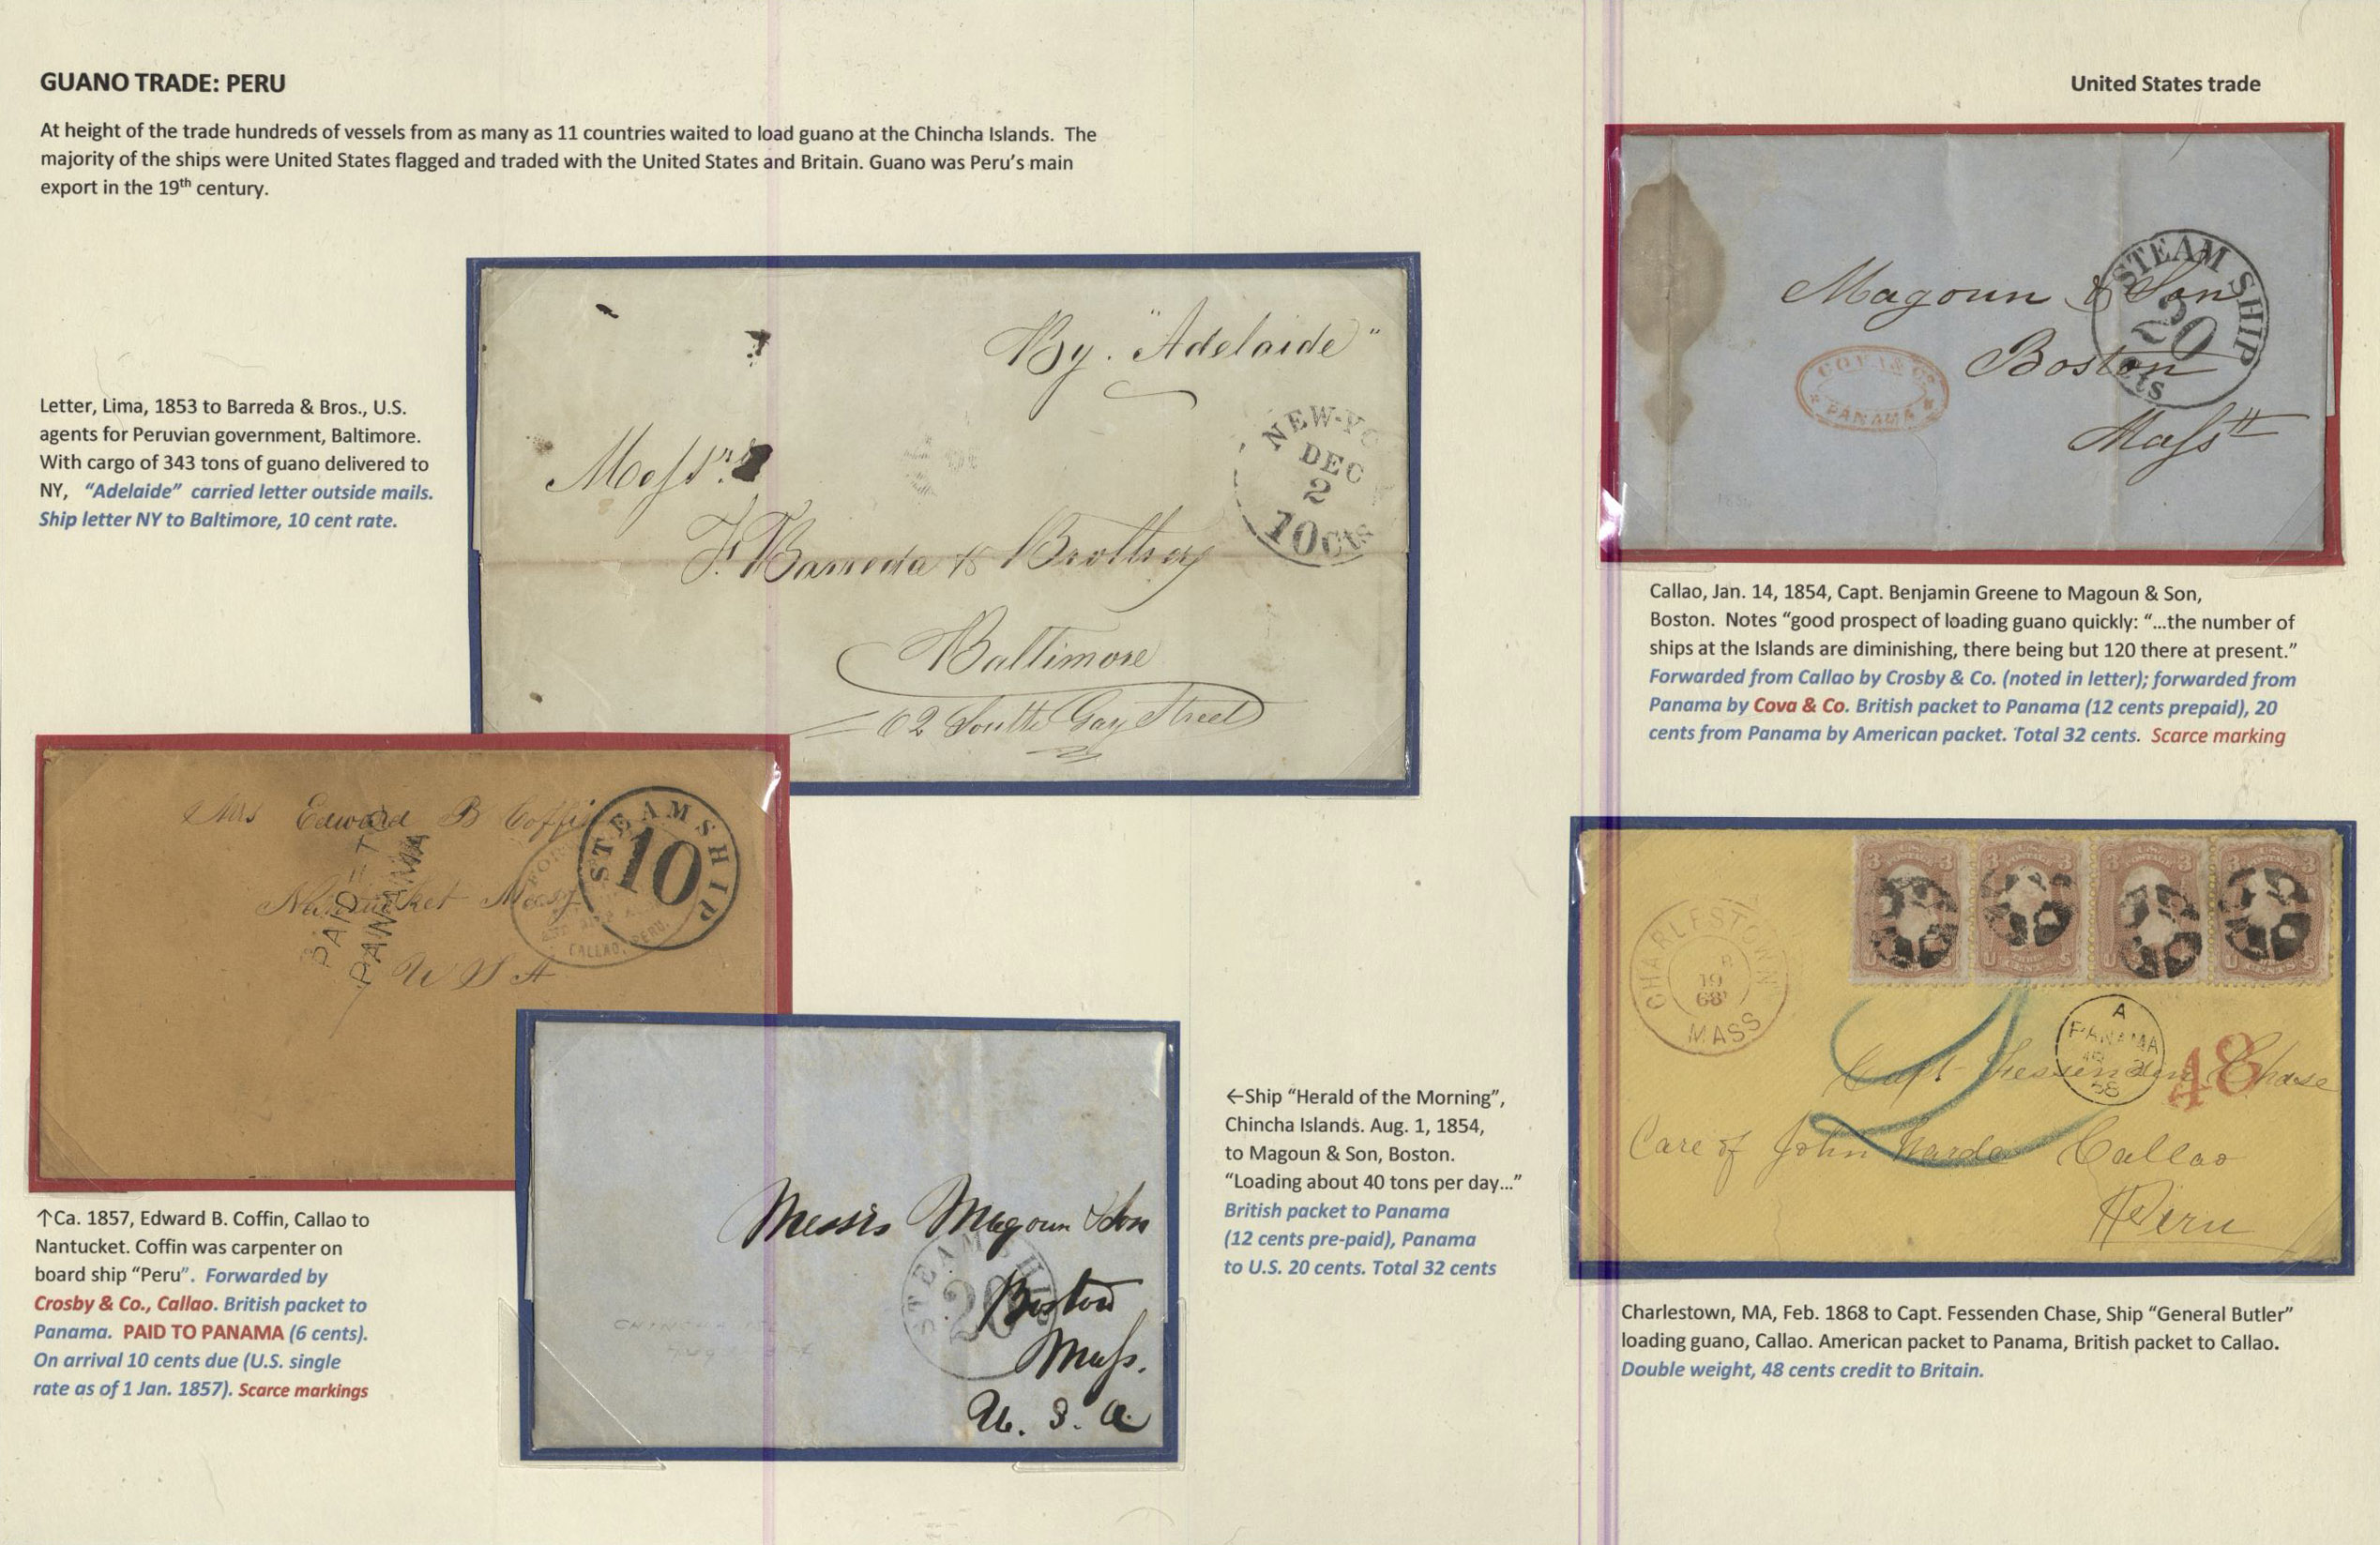 GUANO TRADE: PERU
United States trade
At height of the trade hundreds of vessels from as many as 11 countries waited to load guano at the Chincha Islands. The
majority of the ships were United States flagged and traded with the United States and Britain. Guano was Peru's main
export in the 19th century.
Letter, Lima, 1853 to Barreda & Bros., U.S.
agents for Peruvian government, Baltimore.
With cargo of 343 tons of guano delivered to
NY, "Adelaide" carried letter outside mails.
Ship letter NY to Baltimore, 10 cent rate.
By. "Adelaide"
NEW-YO
DEC
2
10 cts
Messrs
F. Barreda & Brothers
Baltimore
62 South Gay Street
Magoun & Son
Boston
Masstt
STEAM SHIP
20
cts
COVA & Co
PANAMA
Callao, Jan. 14, 1854, Capt. Benjamin Greene to Magoun & Son,
Boston. Notes "good prospect of loading guano quickly: "...the number of
ships at the Islands are diminishing, there being but 120 there at present."
Forwarded from Callao by Crosby & Co. (noted in letter); forwarded from
Panama by Cova & Co. British packet to Panama (12 cents prepaid), 20
cents from Panama by American packet. Total 32 cents. Scarce marking
Mrs Edward B Coffin
Nantucket Mass
U S A
PAID=TO
PANAMA
STEAMSHIP
10
CALLAO, PERU.
↑Ca. 1857, Edward B. Coffin, Callao to
Nantucket. Coffin was carpenter on
board ship "Peru". Forwarded by
Crosby & Co., Callao. British packet to
Panama. PAID TO PANAMA (6 cents).
On arrival 10 cents due (U.S. single
rate as of 1 Jan. 1857). Scarce markings
Messrs Magoun & Son
Boston
Mass.
U. S. A
STEAMSHIP
20
←Ship "Herald of the Morning",
Chincha Islands. Aug. 1, 1854,
to Magoun & Son, Boston.
"Loading about 40 tons per day..."
British packet to Panama
(12 cents pre-paid), Panama
to U.S. 20 cents. Total 32 cents
CHARLESTOWN
19
68
MASS
A
PANAMA
68
48
Capt Fessenden Chase
Care of John Warde Callao
Peru
Charlestown, MA, Feb. 1868 to Capt. Fessenden Chase, Ship "General Butler"
loading guano, Callao. American packet to Panama, British packet to Callao.
Double weight, 48 cents credit to Britain.